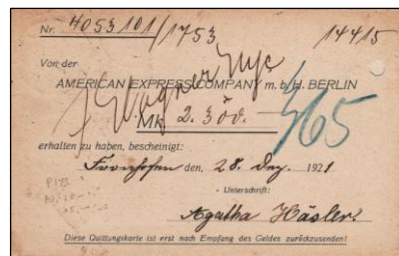 Nr. 4053101/1753 14415
Von der
AMERICAN EXPRESS COMPANY m. b. H. BERLIN
Mk 2.
465
erhalten zu haben, bescheinigt:
den, 28. Dez. 1921
Unterschrift:
Agatha Häsler
Diese Quittungskarte ist erst nach Empfang des Geldes zurückzusenden!